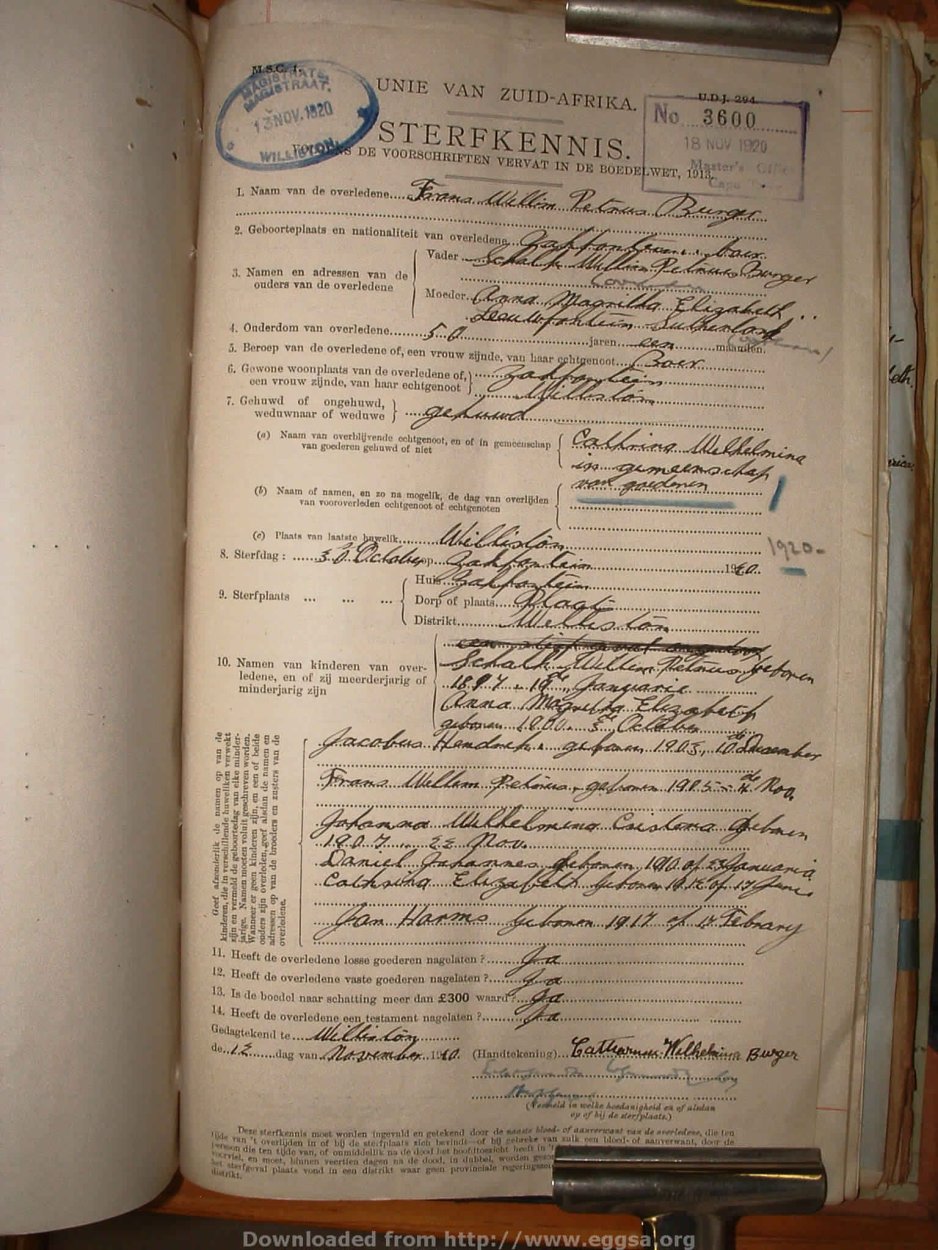 M.S.C. 1.
MAGISTRATE.
MAGISTRAAT.
13 NOV. 1920
WILLISTON.
UNIE VAN ZUID-AFRIKA.
U.D.J. 294
No. 3600
18 NOV 1920
Master's Office
Cape
STERFKENNIS.
DE VOORSCHRIFTEN VERVAT IN DE BOEDELWET, 1913.
1. Naam van de overledene Frans Willim Petrus Burger
2. Geboorteplaats en nationaliteit van overledene Zakfontein boer
3. Namen en adressen van de ouders van de overledene
Vader Schalk Willim Petrus Burger
Moeder Anna Magritha Elizabeth
Leeuwfontein Sutherland
4. Ouderdom van overledene 50 jaren een maanden.
5. Beroep van de overledene of, een vrouw zijnde, van haar echtgenoot Boer
6. Gewone woonplaats van de overledene of, een vrouw zijnde, van haar echtgenoot Zakfontein
Williston
7. Gehuwd of ongehuwd, weduwnaar of weduwe gehuwd
(a) Naam van overblijvende echtgenoot, en of in gemeenschap van goederen gehuwd of niet Cathrina Wilhelmina
in gemeenschap
van goederen
(b) Naam of namen, en zo na mogelik, de dag van overlijden van vooroverleden echtgenoot of echtgenoten
(c) Plaats van laatste huwelik Williston
1920-
8. Sterfdag: 30 October op Zakfontein 1920.
9. Sterfplaats ... ... ...
Huis Zakfontein
Dorp of plaats Plaats
Distrikt Williston
10. Namen van kinderen van overledene, en of zij meerderjarig of minderjarig zijn
Schalk Willem Petrus geboren
1897 18de Januarie
Anna Magritha Elizabeth
geboren 1900. 3de October
Geef afzonderlik de namen op van de kinderen, die in verschillende huweliken verwekt zijn en vermeld de geboortedag van elke minderjarige. Namen moeten voluit geschreven worden. Wanneer er geen kinderen zijn, en een of beide ouders zijn overleden, geef alsdan de namen en adressen op van de broeders en zusters van de overledene.
Jacobus Hendrik geboren 1903, 10de December
Frans Willem Petrus geboren 1905 Nov.
Johanna Wilhelmina geboren
1907 22 Nov.
Daniel Johannes geboren Januarie
Cathrina Elizabeth geboren 1912 of 17 June
Jan Harms geboren 1917 of Febrary
11. Heeft de overledene losse goederen nagelaten? Ja
12. Heeft de overledene vaste goederen nagelaten? Ja
13. Is de boedel naar schatting meer dan £300 waard? Ja
14. Heeft de overledene een testament nagelaten? Ja
Gedagtekend te Williston
de 12 dag van November 1920. (Handtekening) Catharina Wilhelmina Burger
(Vermeld in welke hoedanigheid en of alsdan op of bij de sterfplaats.)
Deze sterfkennis moet worden ingevuld en getekend door de naaste bloed- of aanverwant van de overledene, die ten
tijde van 't overlijden in of bij de sterfplaats zich bevindt—of bij gebreke van zulk een bloed- of aanverwant, door de
persoon die ten tijde van, of onmiddellik na de dood het hoofdtoezicht heeft in
voorviel, en moet, binnen veertien dagen na de dood, in dubbel, worden
het sterfgeval plaats vond in een distrikt waar geen provinciale
distrikt.
Downloaded from http://www.eggsa.org